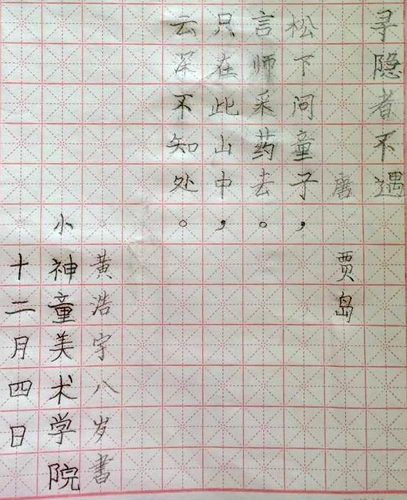 寻隐者不遇
唐 贾岛
松下问童子，
言师采药去。
只在此山中，
云深不知处。
黄浩宇八岁书
小神童美术学院
十二月四日